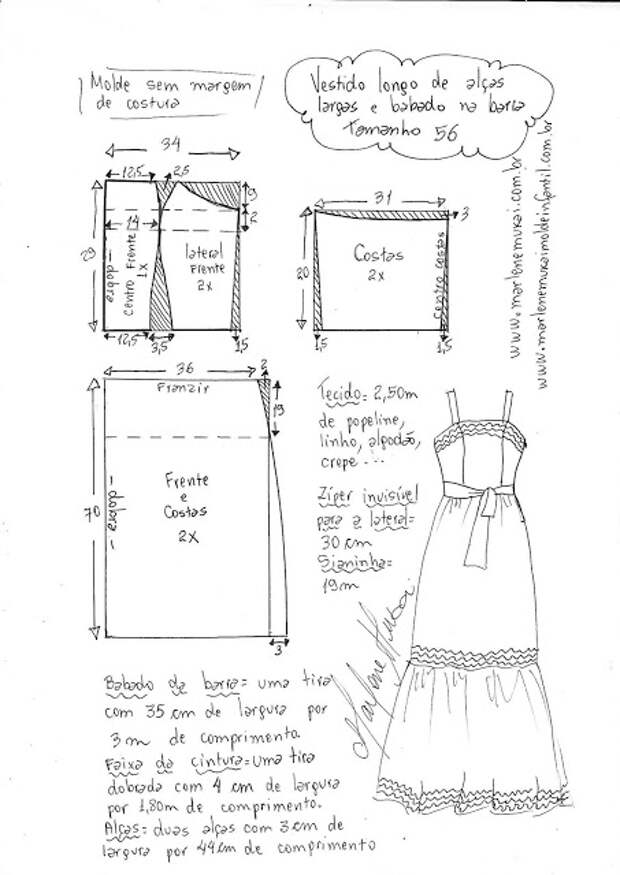 Molde sem margem
de costura
Vestido longo de alças
largas e babado na barra
Tamanho 56
34
12,5
2,5
9
2
14
29
dobra
Centro Frente
1x
lateral
Frente
2x
12,5
3,5
1,5
31
3
20
Costas
2x
centro costas
1,5
1,5
www.marlenemukai.com.br
www.marlenemukaimoldeinfantil.com.br
36
2
Franzir
19
70
dobra
Frente
e
Costas
2x
3
Tecido= 2,50m
de popeline,
linho, algodão,
crepe...
Zíper invisível
para a lateral=
30 cm
Sianinha=
19m
Marlene Mukai
Babado da barra= uma tira
com 35 cm de largura por
3m de comprimento.
Faixa da cintura= uma tira
dobrada com 4 cm de largura
por 1,80m de comprimento.
Alças= duas alças com 3 cm de
largura por 44 cm de comprimento